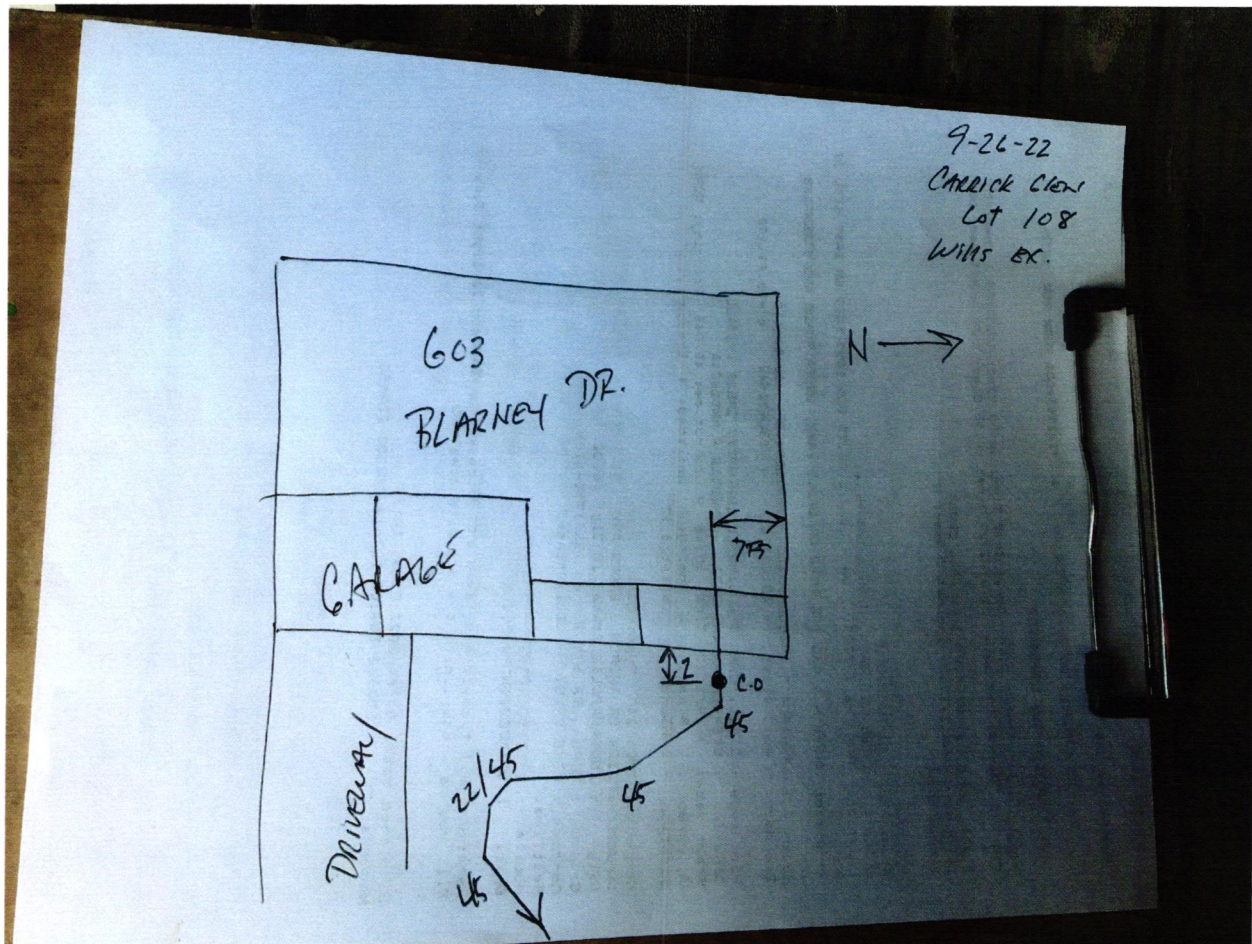 9-26-22
CARRICK GLEN
Lot 108
Wills EX.
N
603
BLARNEY DR.
GARAGE
2
C.O
45
45
22/45
45
DRIVEWAY